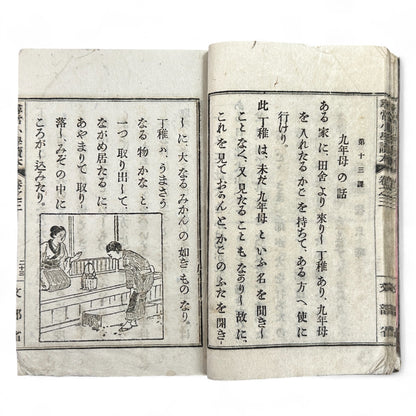 尋常小學讀本 巻之三
文部省
第十三課
九年母の話
ある家に、田舎より來りし丁稚あり、九年母
を入れたるかごを持ちて、ある方へ使に
行けり。
此丁稚は、未だ九年母といふ名を聞きし
ことなく、又見たることもなかりし故に、
これを見ておかんと、かごのふたを開き
しに、大なるみかんの如きものなり。
丁稚ハ、うまさう
なる物かなと、
一つ取り出して
ながめ居たるに、
あやまりて取り
落し、みぞの中に
ころがし込みたり。
尋常小學讀本 巻之三
二十三
文部省